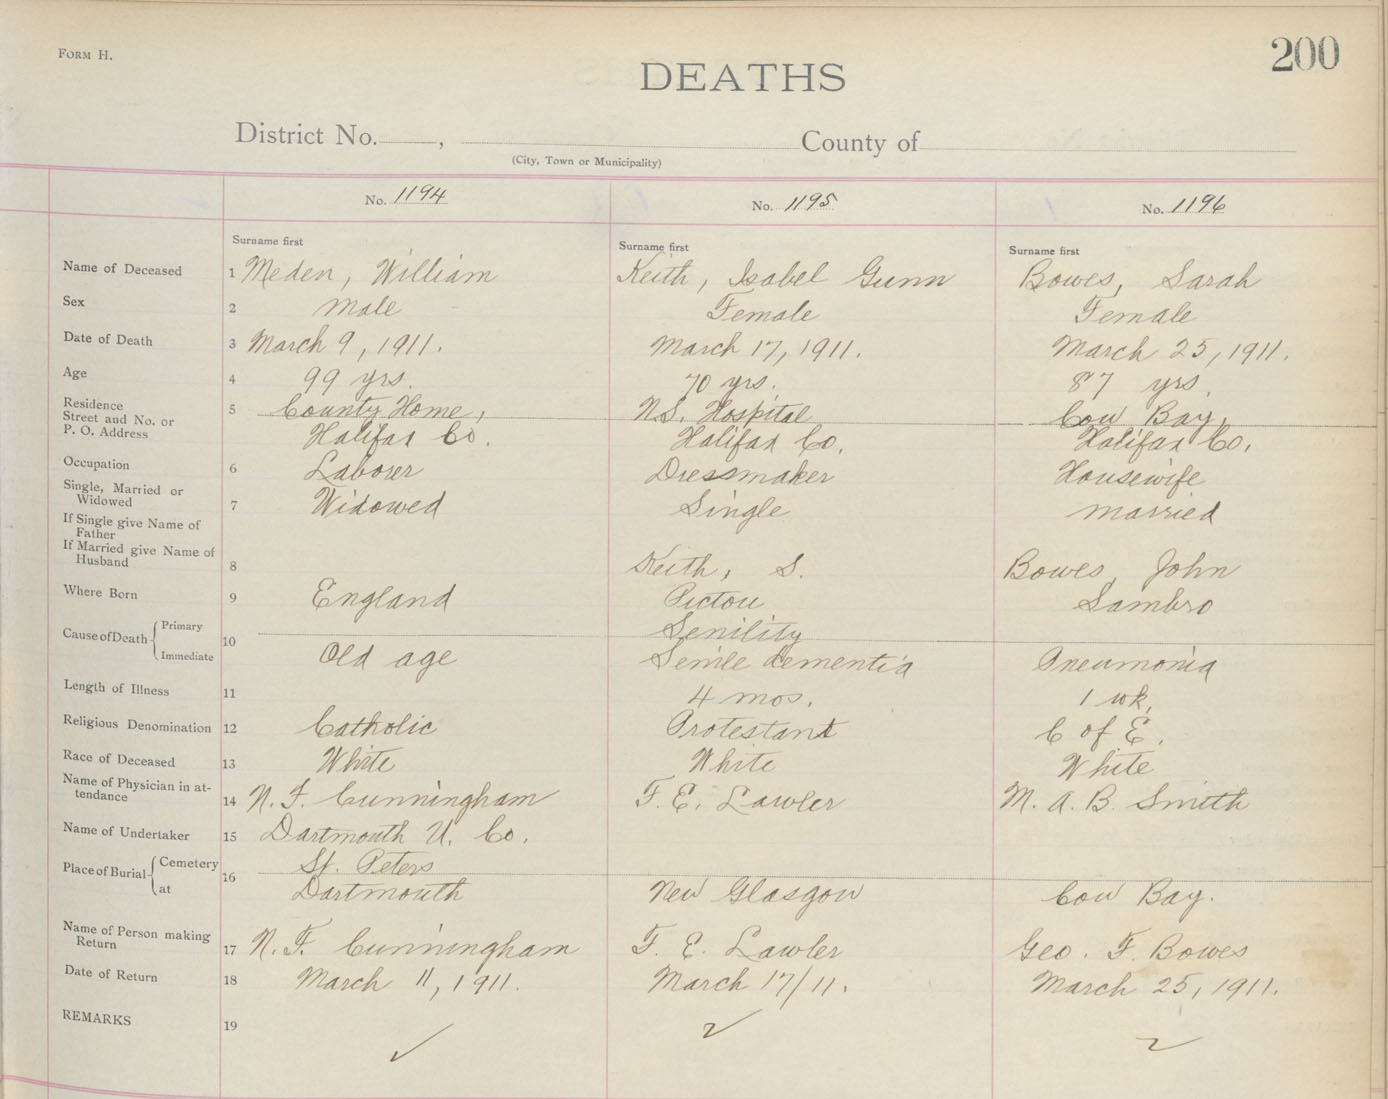 FORM H.
200
DEATHS
District No. , County of
(City, Town or Municipality)
No. 1194 No. 1195 No. 1196
Surname first Surname first Surname first
Name of Deceased 1 Meden, William Keith, Isabel Gunn Bowes, Sarah
Sex 2 Male Female Female
Date of Death 3 March 9, 1911. March 17, 1911. March 25, 1911.
Age 4 99 yrs. 70 yrs. 87 yrs.
Residence
Street and No. or
P. O. Address 5 County Home, N.S. Hospital Cow Bay,
Halifax Co. Halifax Co. Halifax Co.
Occupation 6 Laborer Dressmaker Housewife
Single, Married or
Widowed 7 Widowed Single Married
If Single give Name of
Father
If Married give Name of
Husband 8 Keith, S. Bowes, John
Where Born 9 England Pictou Sambro
Cause of Death Primary 10 Senility
Immediate Old age Senile dementia Pneumonia
Length of Illness 11 4 mos. 1 wk.
Religious Denomination 12 Catholic Protestant C of E.
Race of Deceased 13 White White White
Name of Physician in at-
tendance 14 N. F. Cunningham F. E. Lawler M. A. B. Smith
Name of Undertaker 15 Dartmouth U. Co.
Place of Burial Cemetery 16 St. Peters
at Dartmouth New Glasgow Cow Bay.
Name of Person making
Return 17 N. F. Cunningham F. E. Lawler Geo. F. Bowes
Date of Return 18 March 11, 1911. March 17/11. March 25, 1911.
REMARKS 19